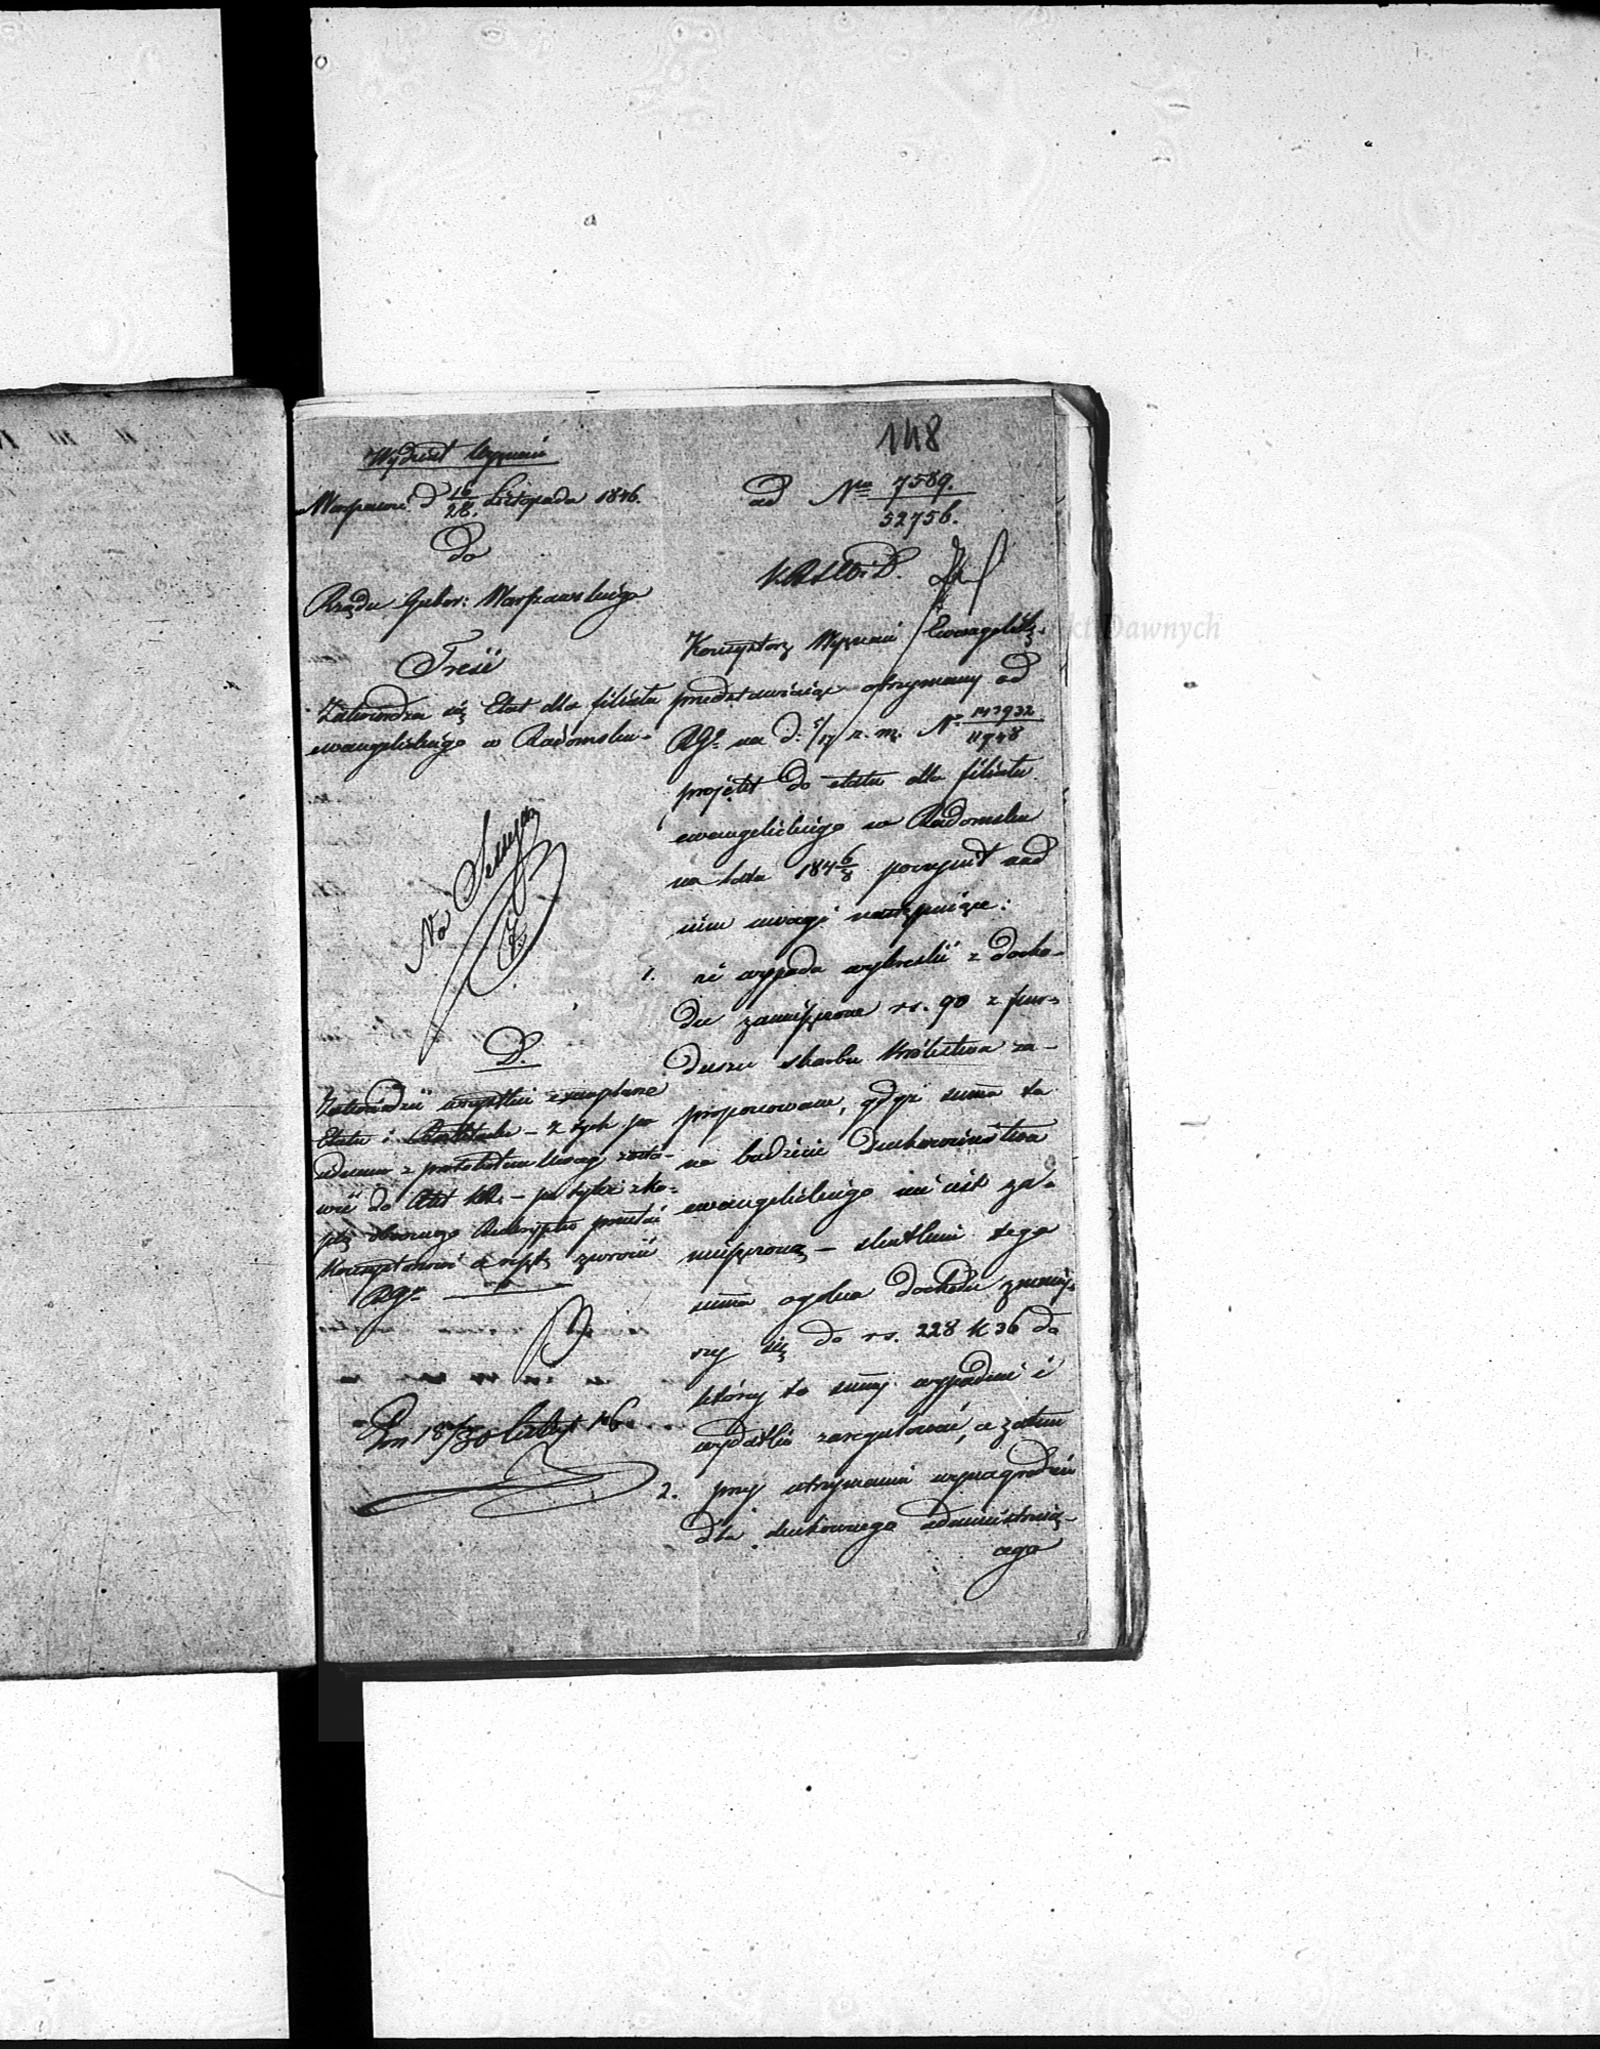 148
Wydział Wyznań
Warszawa d 16/28 Listopada 1846.
do
Rządu Guber: Warszawskiego
Treść
Zatwierdza się Etat dla filiału
ewangelickiego w Radomsku.
Na Sessyą
D.
Zatwierdzić wszystkie exemplarze
Etatu i
wić do Akt KR. – po tyleż
Konsystorowi a resztę zwrócić
RGu.
18/30
ad Nra 7589./52756.
Konsystorz Wyznań Ewangelick.
przedstawiając otrzymany od
RGo na d. 5/17 r. m. No 147932/11948
projekt do etatu dla filiału
ewangelickiego w Radomsku
na lata 1846/8 poczynił nad
nim uwagi następujące:
1. że wypada wykreślić z docho-
du zamieszczone rs. 90 z fun-
duszu skarbu Królestwa za-
proponowane, gdyż summa ta
na budżecie Duchowieństwa
ewangelickiego nie jest za-
mieszczoną – skutkiem tego
summa ogólna dochodu zmniej-
szy się do rs. 228 k 36 do
której to summy wypadnie i
wydatki zaregulować, a zatem
2. przy utrzymaniu wynagrodzeń
dla duchownego administrują-
cego